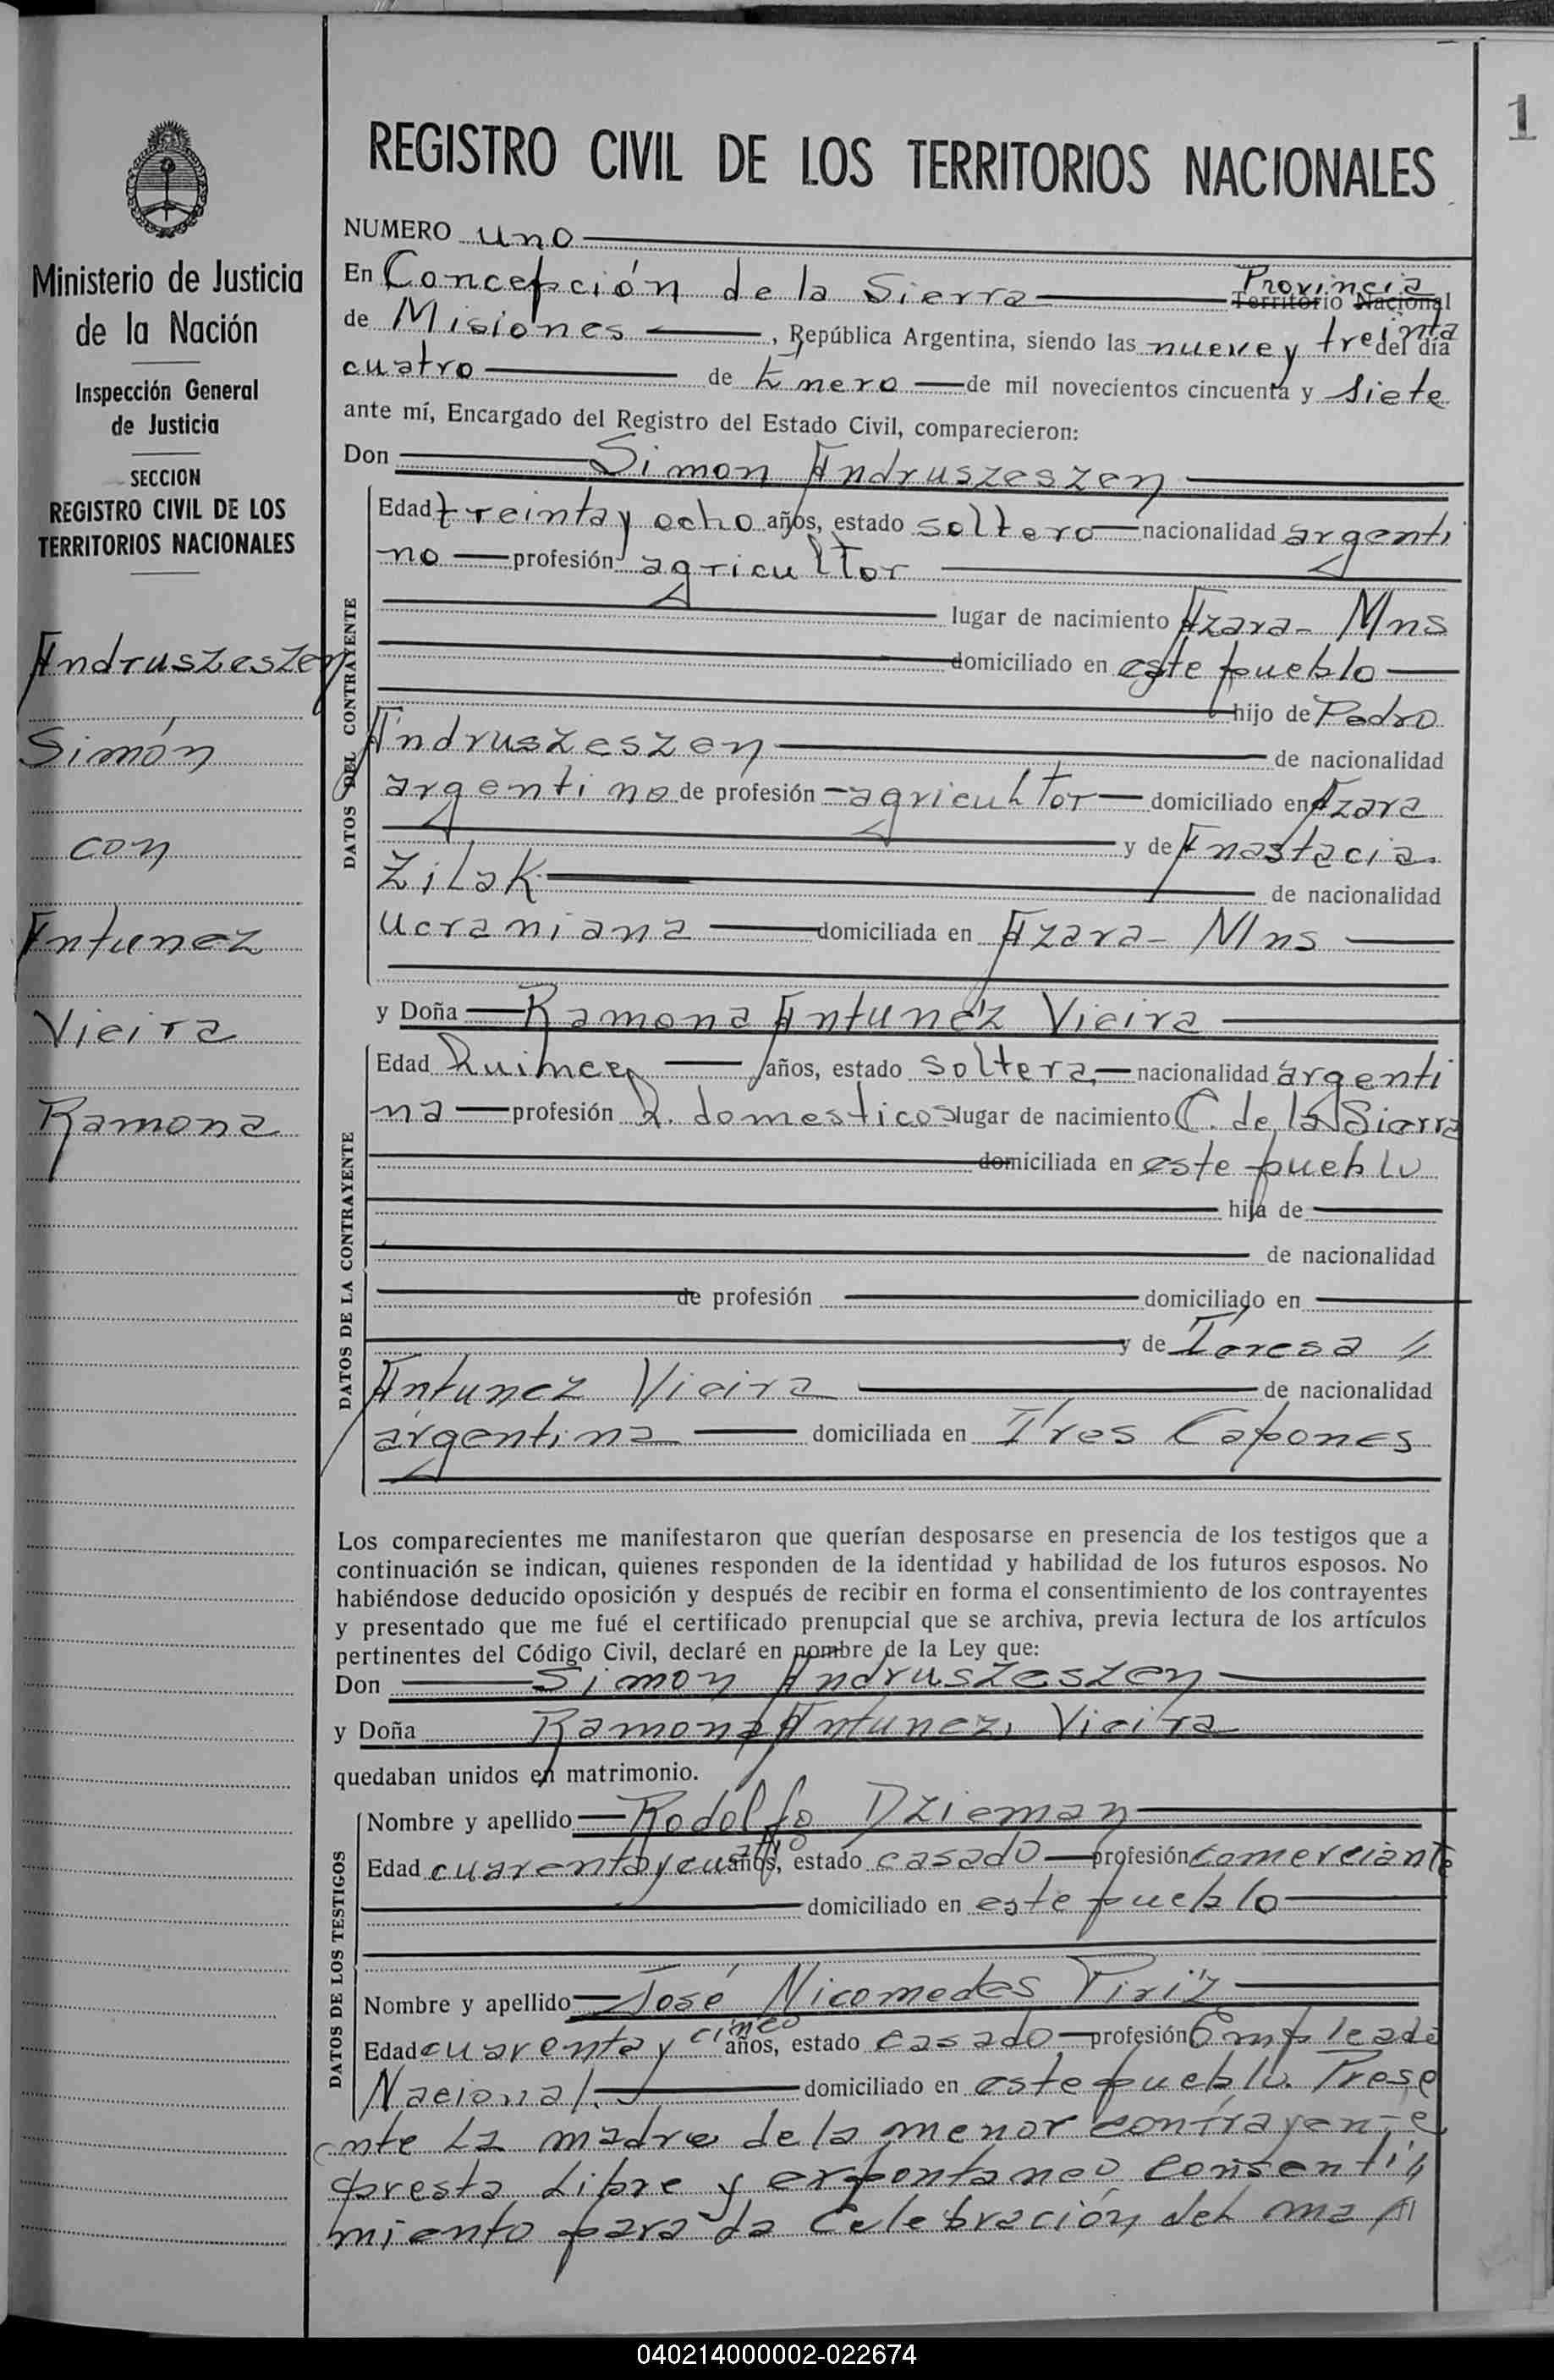 1
REGISTRO CIVIL DE LOS TERRITORIOS NACIONALES
Ministerio de Justicia
de la Nación
Inspección General
de Justicia
SECCION
REGISTRO CIVIL DE LOS
TERRITORIOS NACIONALES
Andruszeszen
Simón
con
Antunez
Vieira
Ramona
NUMERO uno
En Concepción de la Sierra Provincia Territorio Nacional
de Misiones, República Argentina, siendo las nueve y treinta del día
cuatro de Enero de mil novecientos cincuenta y siete
ante mí, Encargado del Registro del Estado Civil, comparecieron:
Don Simon Andruszeszen
DATOS DEL CONTRAYENTE
Edad treinta y ocho años, estado soltero nacionalidad argenti
no profesión agricultor
lugar de nacimiento Azara - Mns
domiciliado en este pueblo
hijo de Pedro
Andruszeszen de nacionalidad
argentino de profesión agricultor domiciliado en Azara
y de Anastacia
Zilak de nacionalidad
ucraniana domiciliada en Azara - Mns
y Doña Ramona Antunez Vieira
DATOS DE LA CONTRAYENTE
Edad Quince años, estado soltera nacionalidad argenti
na profesión Q. domesticos lugar de nacimiento C. de la Sierra
domiciliada en este pueblo
hija de
de nacionalidad
de profesión domiciliado en
y de Teresa
Antunez Vieira de nacionalidad
argentina domiciliada en Tres Capones
Los comparecientes me manifestaron que querían desposarse en presencia de los testigos que a
continuación se indican, quienes responden de la identidad y habilidad de los futuros esposos. No
habiéndose deducido oposición y después de recibir en forma el consentimiento de los contrayentes
y presentado que me fué el certificado prenupcial que se archiva, previa lectura de los artículos
pertinentes del Código Civil, declaré en nombre de la Ley que:
Don Simon Andruszeszen
y Doña Ramona Antunez Vieira
quedaban unidos en matrimonio.
DATOS DE LOS TESTIGOS
Nombre y apellido Rodolfo Dzieman
Edad cuarenta y cuatro años, estado casado profesión comerciante
domiciliado en este pueblo
Nombre y apellido José Nicomedes Piriz
Edad cuarenta y cinco años, estado casado profesión Empleado
Nacional. domiciliado en este pueblo. Prese
nte la madre de la menor contrayente
presta libre y expontaneo consenti
miento para la celebración del ma
040214000002-022674